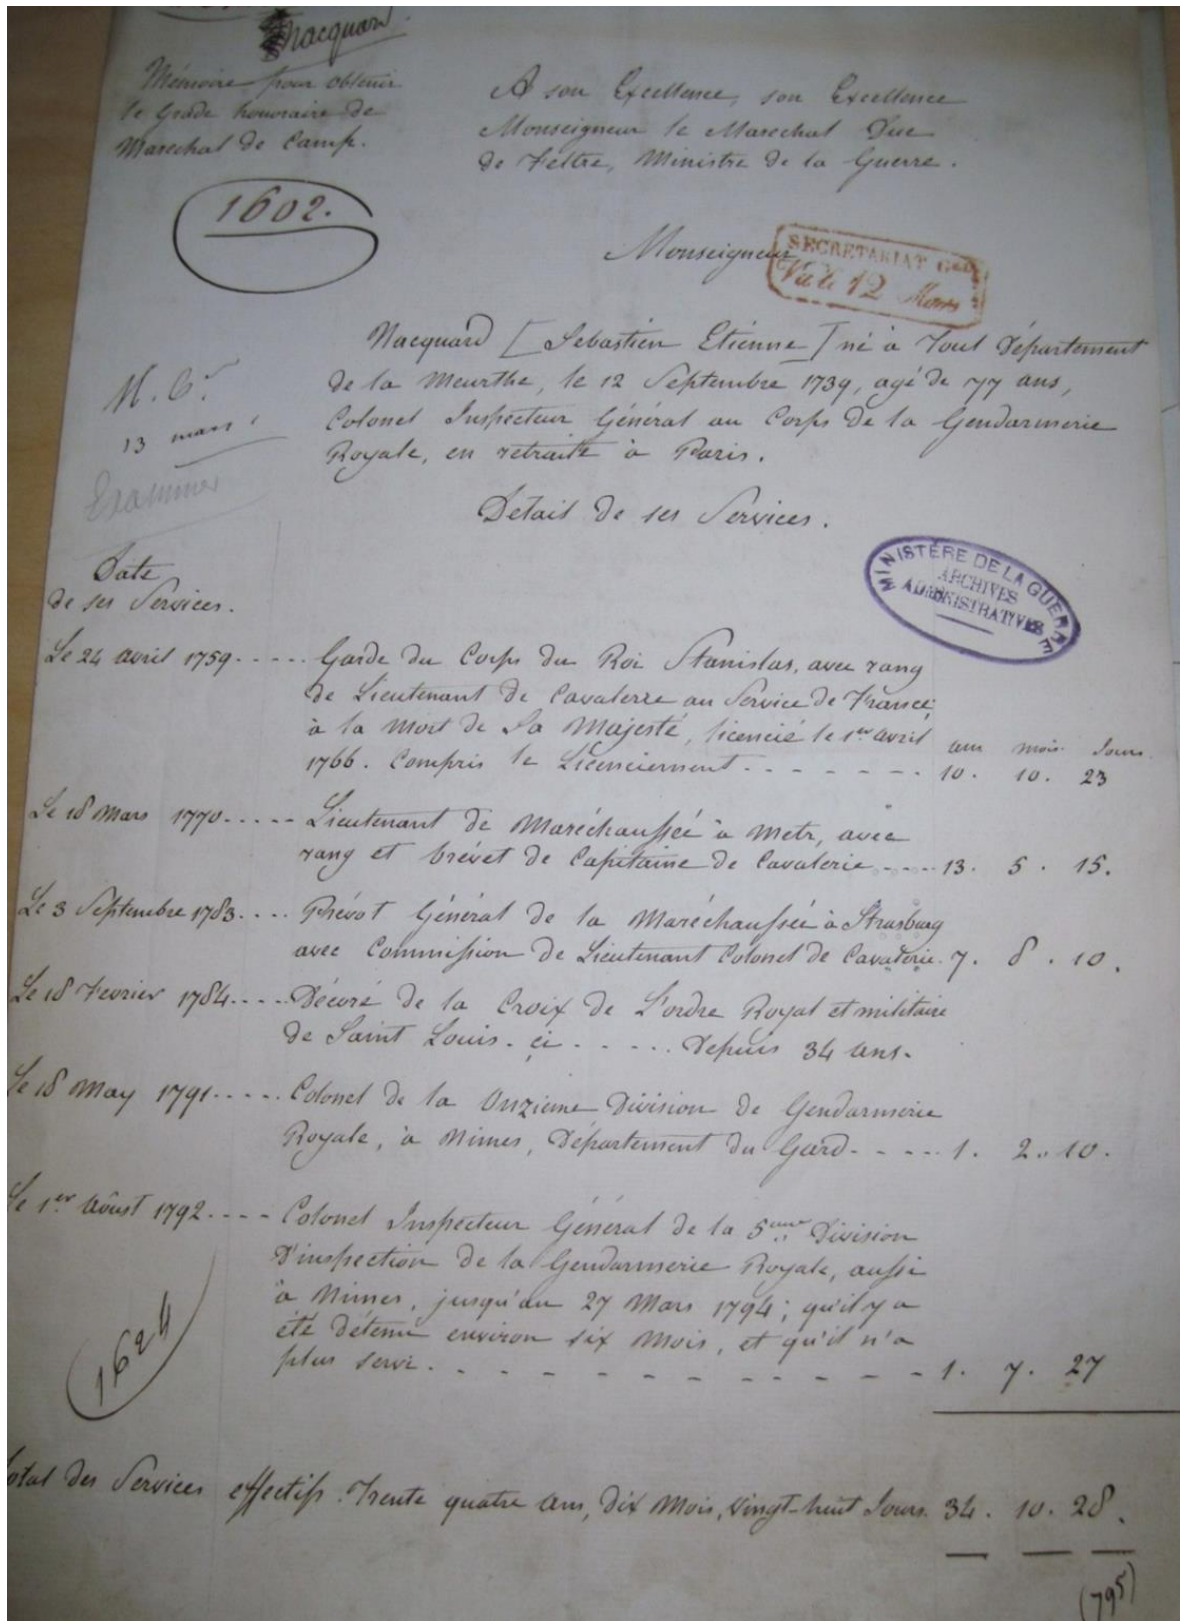 Nacquard
Mémoire pour obtenir
le Grade honoraire de
Marechal de Camp.
A son Excellence, son Excellence
Monseigneur le Marechal Duc
de Feltre, Ministre de la Guerre.
1602.
Monseigneur
SECRETARIAT Gal
12 Mars
Nacquard [Sebastien Etienne] né à Toul Département
de la Meurthe, le 12 Septembre 1739, agé de 77 ans,
Colonel Inspecteur Général au Corps de la Gendarmerie
Royale, en retraite à Paris.
13 mars
Examiner
Détail de ses Services.
MINISTÈRE DE LA GUERRE
ARCHIVES
ADMINISTRATIVES
Date
de ses Services.
Le 24 avril 1759..... Garde du Corps du Roi Stanislas, avec rang
de Lieutenant de Cavalerie au Service de France;
à la mort de Sa Majesté, licencié le 1er avril
ans mois Jours
1766. Compris le Licenciement - - - - - - 10. 10. 23
Le 18 Mars 1770..... Lieutenant de Maréchaussée à Metz, avec
rang et brévet de Capitaine de Cavalerie .... 13. 5. 15.
Le 3 Septembre 1783.... Prévot Général de la Maréchaussée à Strasbourg
avec Commission de Lieutenant Colonel de Cavalerie. 7. 8. 10.
Le 18 Fevrier 1784.... Décoré de la Croix de L'ordre Royal et militaire
de Saint Louis. ci ..... Depuis 34 ans.
Le 18 May 1791..... Colonel de la Onzieme Division de Gendarmerie
Royale, à Nimes, Département du Gard ..... 1. 2. 10.
Le 1er Aôust 1792.... Colonel Inspecteur Général de la 5eme Division
D'inspection de la Gendarmerie Royale, aussi
à Nimes, jusqu'au 27 Mars 1794; qu'il y a
été détenu environ six mois, et qu'il n'a
plus servi. - - - - - - - - - - 1. 7. 27
1624
Total des Services effectifs. Trente quatre ans, dix mois, vingt-huit Jours. 34. 10. 28.
(795)